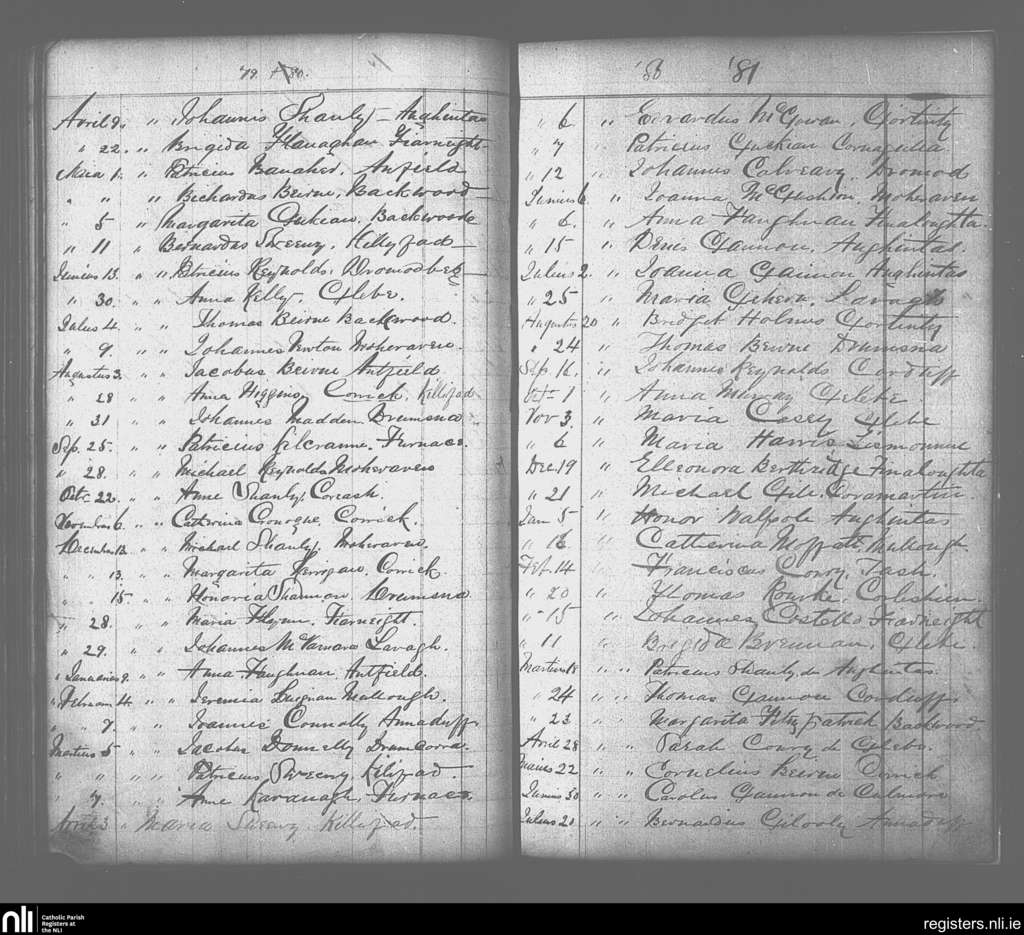 '79. + 80.
April 9. " Johannis Shanly - Aughintas
" 22. " Brigida Flanaghan Fearneight
Maia 1. " Patricius Banahed. Anfield
" " " Richardas Beirne, Backwood
" 5 " Margarita Gukian, Backwood
" 11 " Bernardas Sweeny, Killyfad
Junius 13. " " Patricius Reynolds,
" 30. " " Anna Kelly, Glebe.
Julius 4. " " Thomas Beirne Backwood.
" 9. " " Johannes Newton Moheraven.
Augustus 3. " " Jacobus Beirne Antfield
" 28 " " Anna Higgins, Corrick, Killifad
" 31 " Johannes Madden Drumsna
Sep. 25. " " Patricius Kilcranne, Furnace.
" 28. " " Michael Reynolds Moheraven
Oct. 22. " " Anne Shanly, Coreash.
Novembris 6. " " Catherina Corrick.
Decembris 13. " " Michael Shanly, Moheraven.
" " 13. " " Margarita Kerrigan, Corrick
" " 15. " " Honoria Shannon, Drumsna
" 28. " " Maria Flynn, Fearneight.
" 29. " Johannes McNamara Lavagh.
" Januarius 9. " " Anna Faughnan Antfield.
" Februarii 4. " " Jeremia Duignan Mullough.
" " 7. " " Joannes Connolly Annaduff
Martius 5 " " Jacobus Donnelly Drumcorra.
" " " " Patricius Sweeny, Kilifad.
" 7. " " Anne Kavanagh, Furnace.
April 3 " Maria Sweeny Killyfad.
'80 '81
" 6 " Evrardus McGowan, Gortinty
" 7 " Patricius Guckian Cornagulia
" 12 " Johannes Calreavy, Dromod
Junius 6. " Joanna McGushion, Moheraven
" 6. " Anna Faughnan Finaloughta.
" 15 " Denis Gannon, Aughintas.
Julius 2. " Joanna Gannon Aughintas
" 25 " Maria Gehern, Lavagh
Augustus 20 " Bridget Holmes Gortinty
" 24 " Thomas Beirne Drumsna
Sep. 16. " Johannes Reynolds Corduff
Oct 1 " Anna Murray Glebe
Nov 3. " Maria Casey Glebe
" 6 " Maria Harris Lismounu
Dec. 19 " Elleonora Berthridge Finaloughta
" 21 " Michael Gile. Coramartin
Jan 5 " Honor Walpole Aughintas
" 16 " Catherina Moffatt, Mullough
Feb. 14 " Franciscus Conry, Jash.
" 20 " Thomas Rourke,
" 15 " Johannes Costello Fearneight
" 11 " Brigida Brennan, Glebe.
Martius 18 " " Patricius Shanly de Aughintas.
" 24 " " Thomas Gannon Corduff
" 23 " Margarita Fitzpatrick Backwood
April 28 " " Sarah Conry de Glebe.
Maius 22 " " Cornelius Beirne Corrick
Junius 30 " " Carolus Gannon de Culmore
Julius 20 " " Bernardus Gilooly Annaduff
nli Catholic Parish
Registers at
the NLI
registers.nli.ie